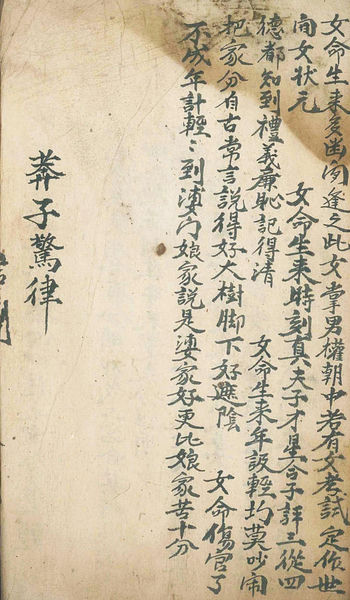 女命生來多幽闲逢之此女掌男權朝中若有女考試定作世
间女狀元 女命生來時刻真夫子才星合子評三從四
德都知到禮義廉恥記得清 女命生來年設輕均莫吵闹
把家分自古常言說得好大樹脚下好遮陰 女命傷官了
不成年計輕〻到婆门娘家說是婆家好更比娘家苦十分
莽子驚律